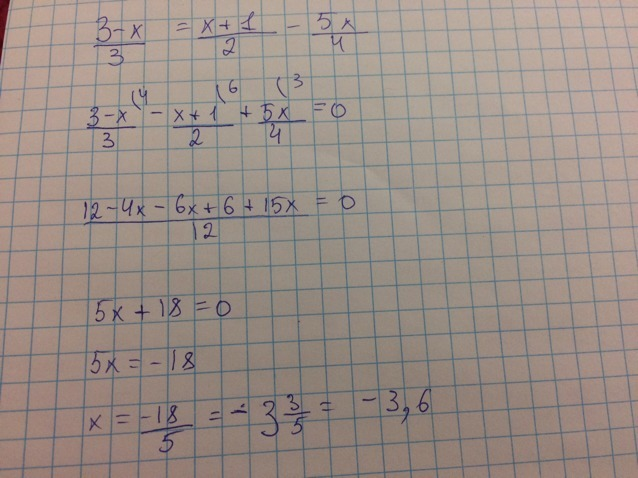 3-x/3 = x+1/2 - 5x/4
3-x/3 (4 - x+1/2 (6 + 5x/4 (3 = 0
12-4x-6x+6+15x/12 = 0
5x+18=0
5x=-18
x = -18/5 = -3 3/5 = -3,6